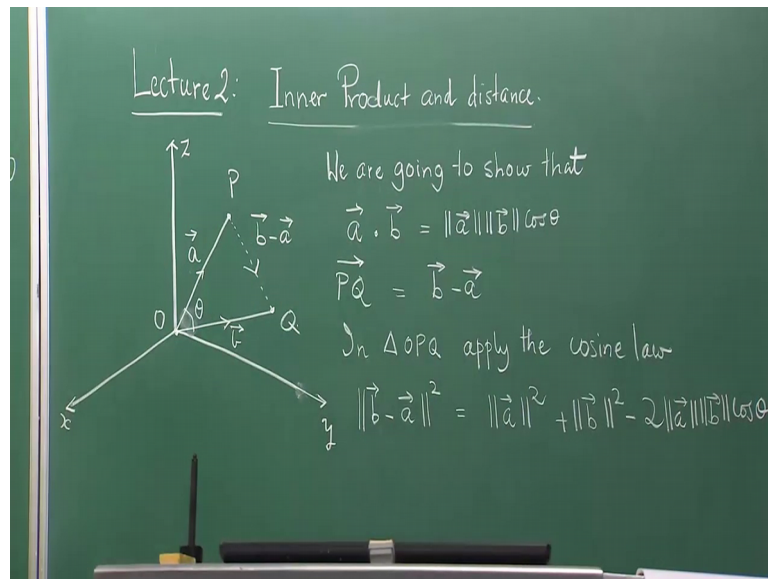 Lecture 2: Inner Product and distance.
z
P
We are going to show that
\vec{a} . \vec{b} = ||\vec{a}|| ||\vec{b}|| cosθ
\vec{b}-\vec{a}
\vec{a}
\vec{PQ} = \vec{b}-\vec{a}
θ
O
Q
\vec{b}
In ΔOPQ apply the cosine law
||\vec{b}-\vec{a}||² = ||\vec{a}||² + ||\vec{b}||² - 2||\vec{a}|| ||\vec{b}|| cosθ
x
y